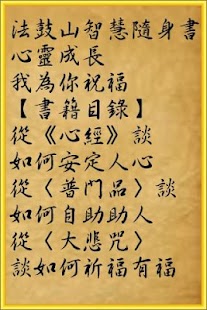 法鼓山智慧隨身書
心靈成長
我為你祝福
【書籍目錄】
從《心經》談
如何安定人心
從〈普門品〉談
如何自助助人
從〈大悲咒〉
談如何祈福有福